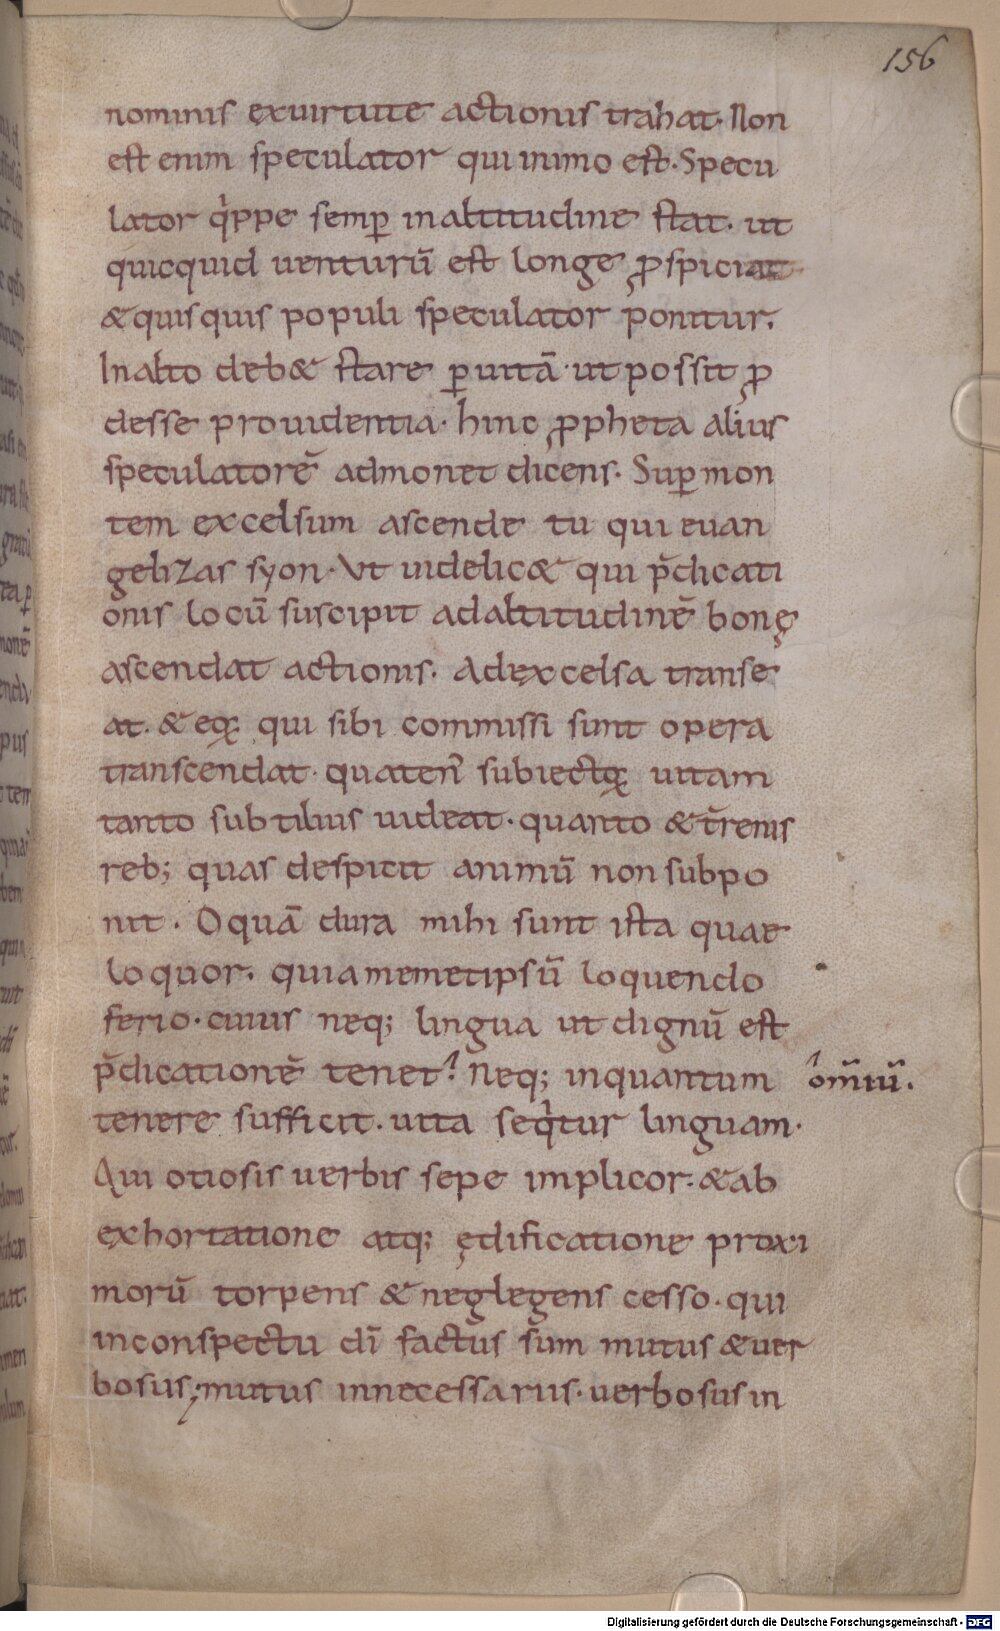 156
nominis exuirtute actionis trahat. Non
est enim speculator qui inimo est. Specu
lator q̇ppe semꝑ inaltitudine stat. ut
quicquid uenturū est longe ꝓspiciat
&quisquis populi speculator ponitur.
Inalto deb& stare ꝑuitā ut possit ꝓ
desse prouidentia. hinc ꝓpheta alius
speculatorē admonet dicens. Suꝑmon
tem excelsum ascende tu qui euan
gelizas syon. Vt uidelic& qui p̄dicati
onis locū suscipit adaltitudinē bonę
ascendat actionis. Adexcelsa transe
at. & eoꝝ qui sibi commissi sunt opera
transcendat. quaten' subiectoꝝ uitam
tanto subtilius uideat. quanto &t̄renis
reb; quas despicit animū non subpo
nit. O quā dura mihi sunt ista quae
loquor. quia memetipsū loquendo
ferio. cuius neq; lingua ut dignū est
p̄dicationē tenet? Neq; inquantum om̄iū.
tenere sufficit. uita seq̇tur linguam.
Qui otiosis uerbis sepe implicor. &ab
exhortatione atq; ędificatione proxi
morū torpens & neglegens cesso. qui
inconspectu dī factus sum mutus &uer
bosus; mutus innecessarus. uerbosus in
Digitalisierung gefördert durch die Deutsche Forschungsgemeinschaft - DFG